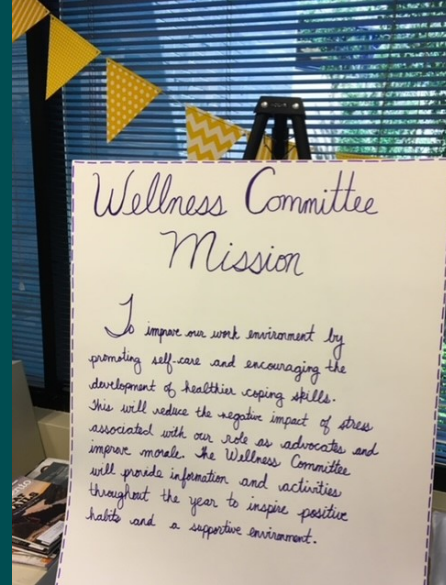 Wellness Committee
Mission
To improve our work environment by
promoting self-care and encouraging the
development of healthier coping skills.
This will reduce the negative impact of stress
associated with our role as advocates and
improve morale. The Wellness Committee
will provide information and activities
throughout the year to inspire positive
habits and a supportive environment.